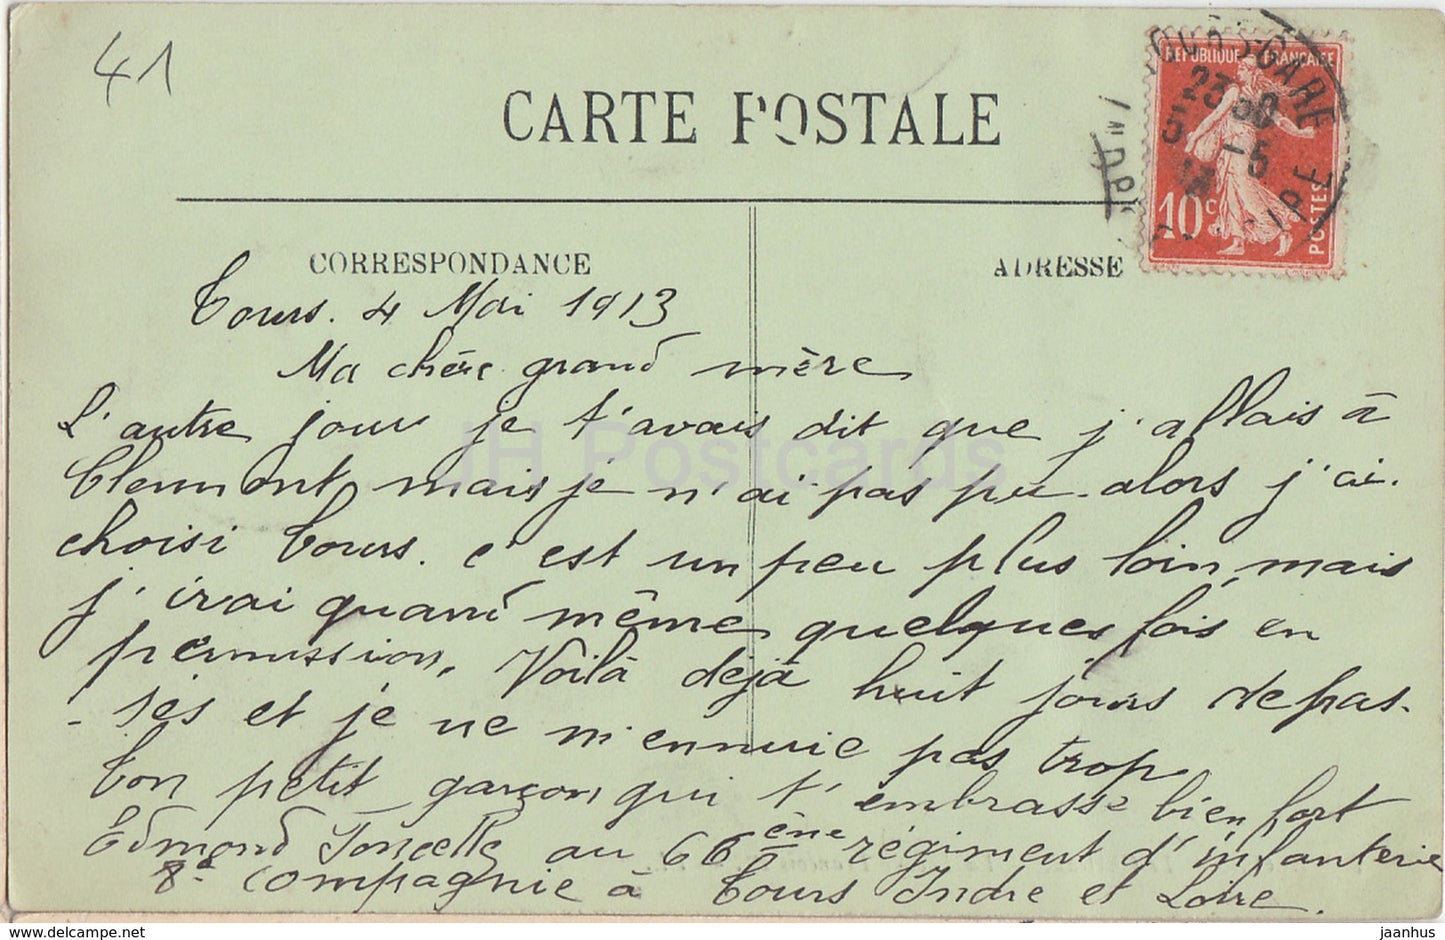 41
CARTE POSTALE
CORRESPONDANCE
ADRESSE
REPUBLIQUE FRANÇAISE
10c
POSTES
TOURS-GARE
23 30
5 - 5
INDRE
Tours. 4 Mai 1913
Ma chère grand mère
L'autre jour je t'avais dit que j'allais à
Clermont mais je n'ai pas pu. alors j'ai.
choisi Tours. c'est un peu plus loin, mais
j'irai quand même quelques fois en
permission. Voilà déjà huit jours de pas-
-sés et je ne m'ennuie pas trop
Ton petit garçon qui t'embrasse bien fort
Edmond au 66ème régiment d'infanterie
8e compagnie à Tours Indre et Loire.
IH Postcards
delcampe.net
jaanhus